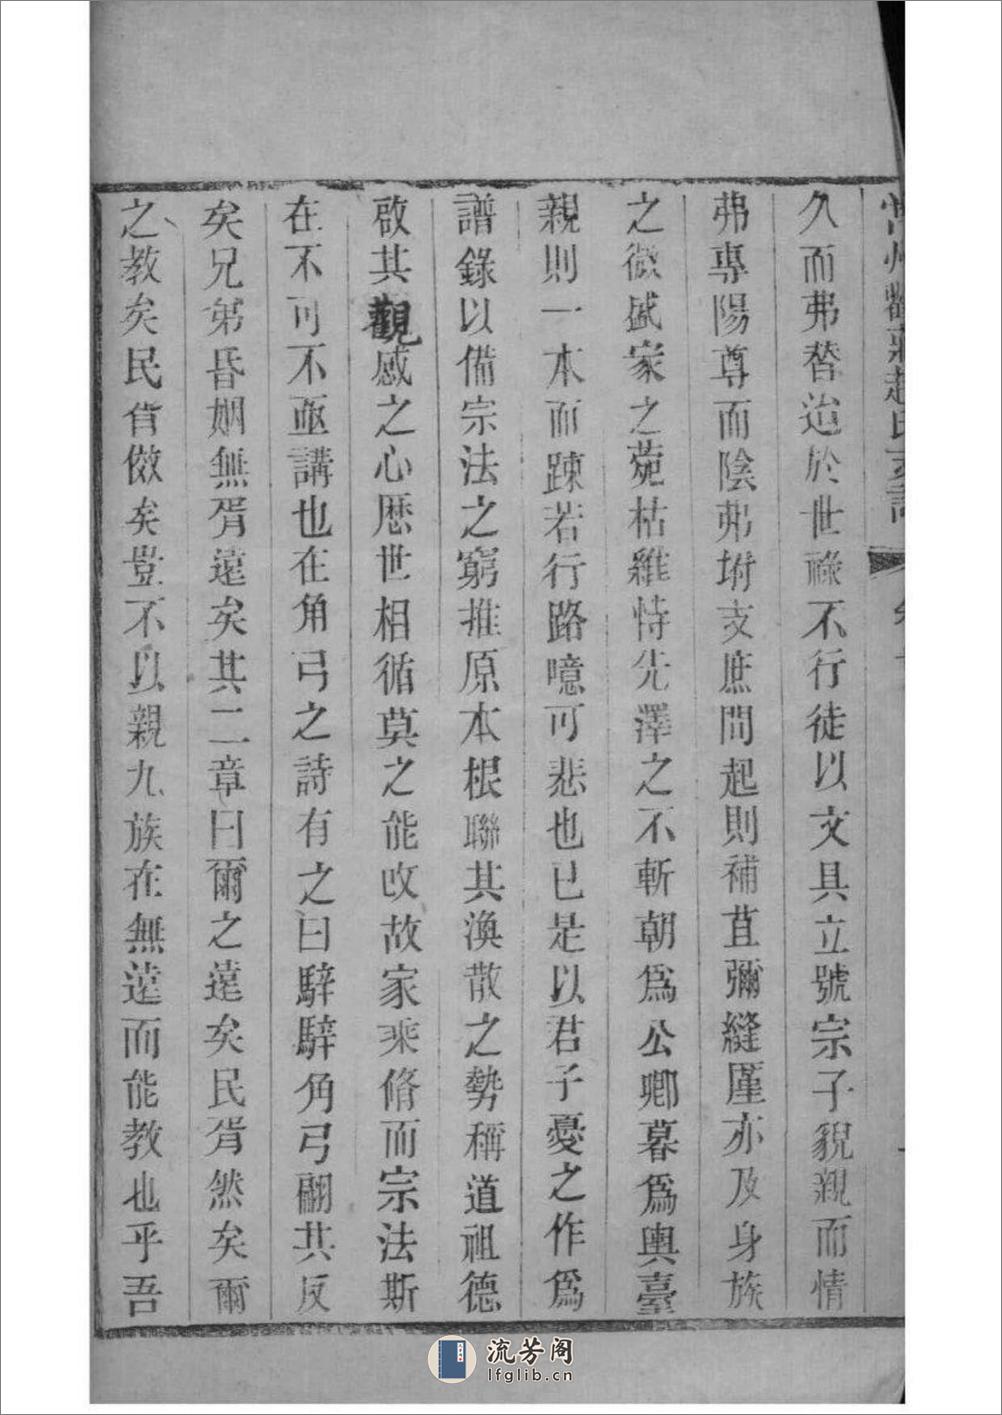 久而弗替迨於世祿不行徒以文具立號宗子貌親而情
弗專陽尊而陰弗坿支庶間起則補苴彌縫廑亦及身族
之微盛家之菀枯雖恃先澤之不斬朝爲公卿暮爲輿臺
親則一本而踈若行路噫可悲也已是以君子憂之作爲
譜錄以備宗法之窮推原本根聯其渙散之勢稱道祖德
啟其觀感之心歷世相循莫之能攺故家乘脩而宗法斯
在不可不亟講也在角弓之詩有之曰騂騂角弓翩其反
矣兄弟昏姻無胥遠矣其二章曰爾之遠矣民胥然矣爾
之教矣民胥傚矣豈不以親九族在無遠而能教也乎吾
流芳阁
lfglib.cn